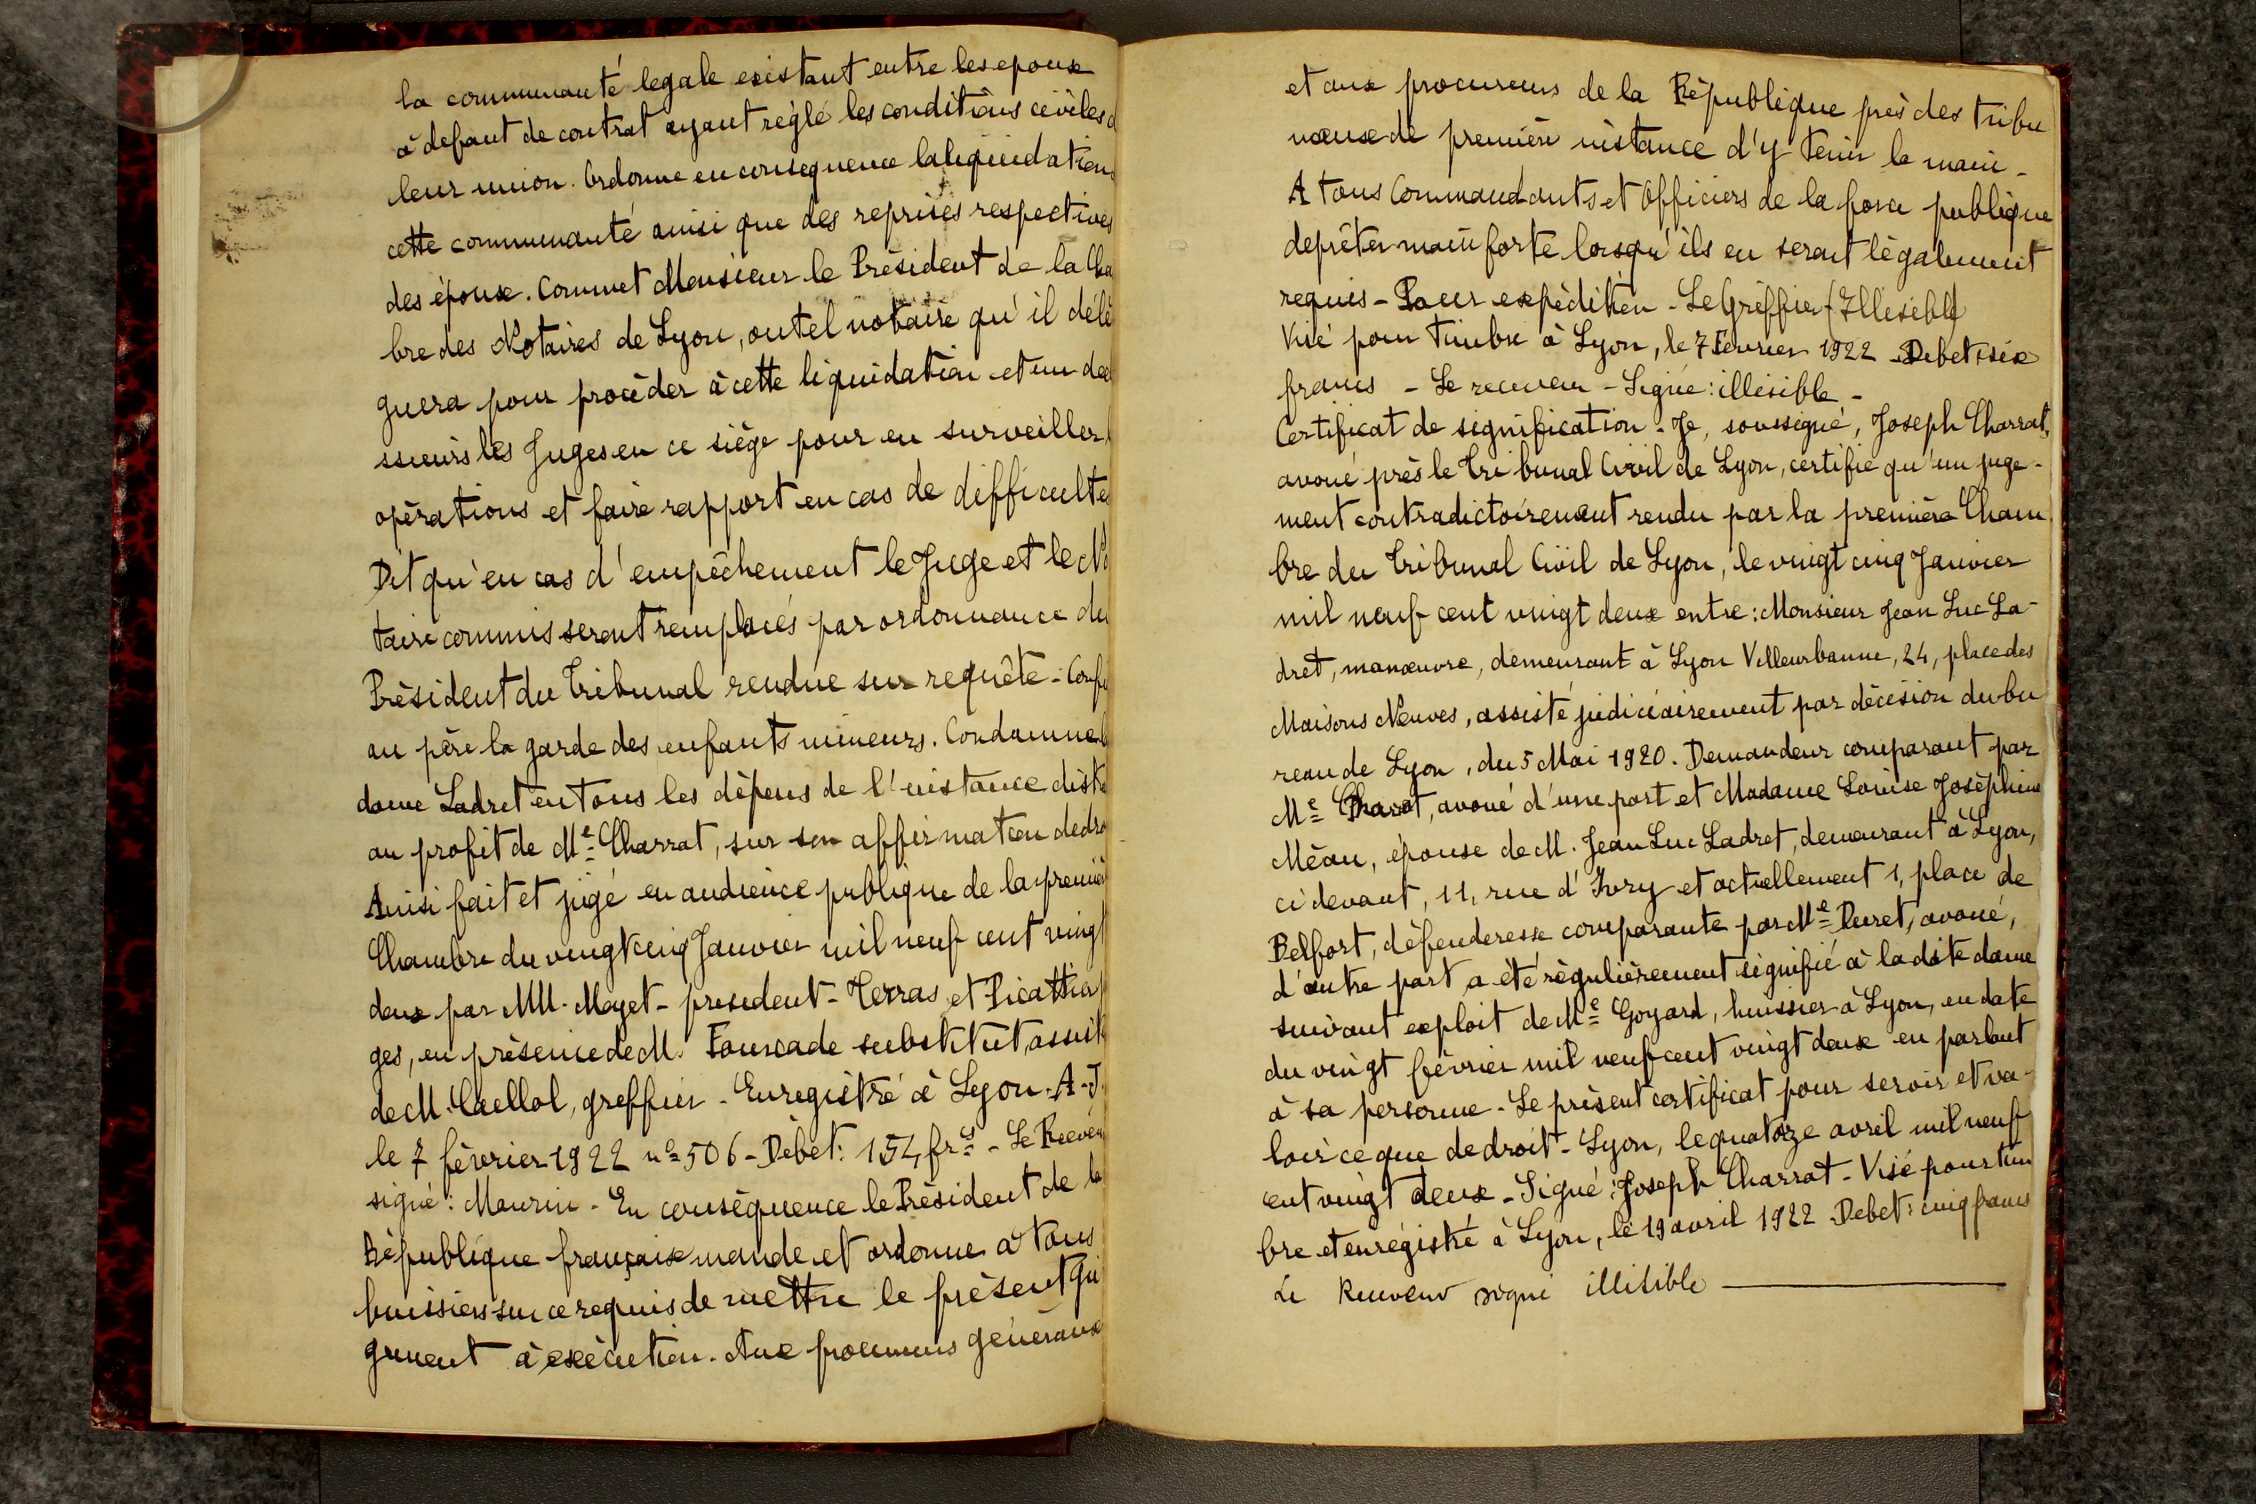 la communauté legale existant entre les epoux
à defaut de contrat ayant règlé les conditions civiles d
leur union. Ordonne en consequence la liquidation
cette communauté ainsi que des reprises respectives
des époux. Commet Monsieur le Président de la Cha
bre des Notaires de Lyon, ou tel notaire qu'il délé
guera pour procéder à cette liquidation et un de
ssieurs les Juges en ce siège pour en surveiller
opérations et faire rapport en cas de difficulté
Dit qu'en cas d'empêchement le Juge et le No
taire commis seront remplacés par ordonnance du
Président du Tribunal rendue sur requête - Confi
au père la garde des enfants mineurs. Condamne l
dame Ladret en tous les dépens de l'instance dist
au profit de Me Charrat, sur son affirmation de dro
Ainsi fait et jugé en audience publique de la premièr
Chambre du vingt cinq Janvier mil neuf cent vingt
deux par MM. Mayet - president - Terras et Picattier
ges, en présence de M. Fourcade substitut, assist
de M. Caellol, greffier - Enregistré à Lyon - A - J.
le 7 février 1922 no 506 - Débet: 154, frs - Le Recev
signé: Maurin - En conséquence le Président de la
République française mande et ordonne à tous
huissiers sur ce requis de mettre le présent ju
gement à exécution. Aux procureurs généraux
et aux procureurs de la République près des tribu
naux de première instance d'y tenir la main -
A tous Commandants et Officiers de la force publique
de prêter main forte lorsqu'ils en seront légalement
requis - Pour expédition - Le Greffier (Illisible)
Visé pour timbre à Lyon, le 7 Février 1922 - Debet: six
francs - Le receveur - Signé: illisible -
Certificat de signification - Je, soussigné, Joseph Charrat,
avoué près le Tribunal Civil de Lyon, certifie qu'un juge-
ment contradictoirement rendu par la première Cham
bre du Tribunal Civil de Lyon, le vingt cinq Janvier
mil neuf cent vingt deux entre: Monsieur Jean Luc La-
dret, manœuvre, demeurant à Lyon Villeurbanne, 24, place des
Maisons Neuves, assisté judiciairement par décision du bu
reau de Lyon, du 5 Mai 1920. Demandeur comparant par
Me Charat, avoué d'une part et Madame Louise Joséphine
Méan, épouse de M. Jean Luc Ladret, demeurant à Lyon,
ci devant, 11, rue d'Ivry et actuellement 1, place de
Belfort, défenderesse comparante par Me Duret, avoué,
d'autre part a été régulièrement signifié à la dite dame
suivant exploit de Me Goyard, huissier à Lyon, en date
du vingt février mil neuf cent vingt deux en parlant
à sa personne - Le présent certificat pour servir et va-
loir ce que de droit - Lyon, le quatorze avril mil neuf
cent vingt deux - Signé: Joseph Charrat - Visé pour tim
bre et enregistré à Lyon, le 19 avril 1922 Debet: cinq francs
Le Receveur signé illisible